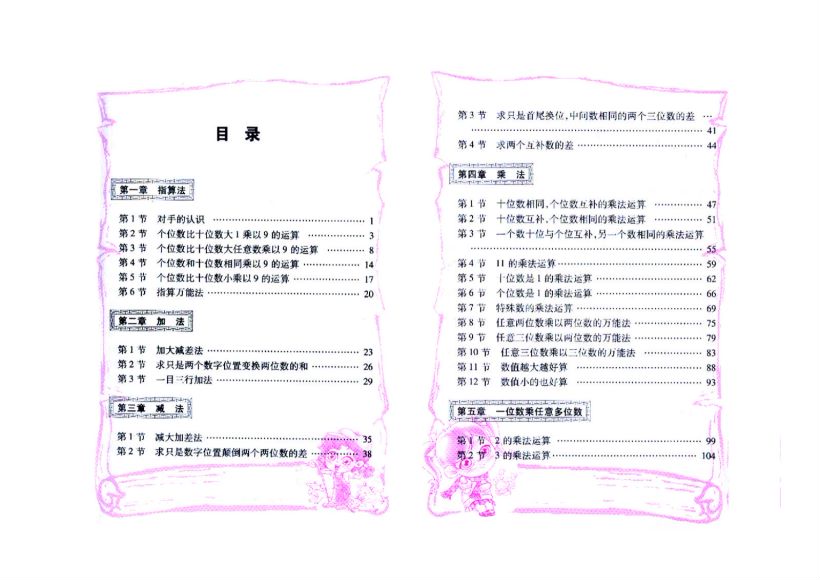 目 录
第一章 指算法
第1节 对手的认识 …… 1
第2节 个位数比十位数大1乘以9的运算 …… 3
第3节 个位数比十位数大任意数乘以9的运算 …… 8
第4节 个位数和十位数相同乘以9的运算 …… 14
第5节 个位数比十位数小乘以9的运算 …… 17
第6节 指算万能法 …… 20
第二章 加 法
第1节 加大减差法 …… 23
第2节 求只是两个数字位置变换两位数的和 …… 26
第3节 一目三行加法 …… 29
第三章 减 法
第1节 减大加差法 …… 35
第2节 求只是数字位置颠倒两个两位数的差 …… 38
第3节 求只是首尾换位,中间数相同的两个三位数的差 …
…… 41
第4节 求两个互补数的差 …… 44
第四章 乘 法
第1节 十位数相同,个位数互补的乘法运算 …… 47
第2节 十位数互补,个位数相同的乘法运算 …… 51
第3节 一个数十位与个位互补,另一个数相同的乘法运算
…… 55
第4节 11的乘法运算 …… 59
第5节 十位数是1的乘法运算 …… 62
第6节 个位数是1的乘法运算 …… 66
第7节 特殊数的乘法运算 …… 69
第8节 任意两位数乘以两位数的万能法 …… 75
第9节 任意三位数乘以两位数的万能法 …… 79
第10节 任意三位数乘以三位数的万能法 …… 83
第11节 数值越大越好算 …… 88
第12节 数值小的也好算 …… 93
第五章 一位数乘任意多位数
第1节 2的乘法运算 …… 99
第2节 3的乘法运算 …… 104